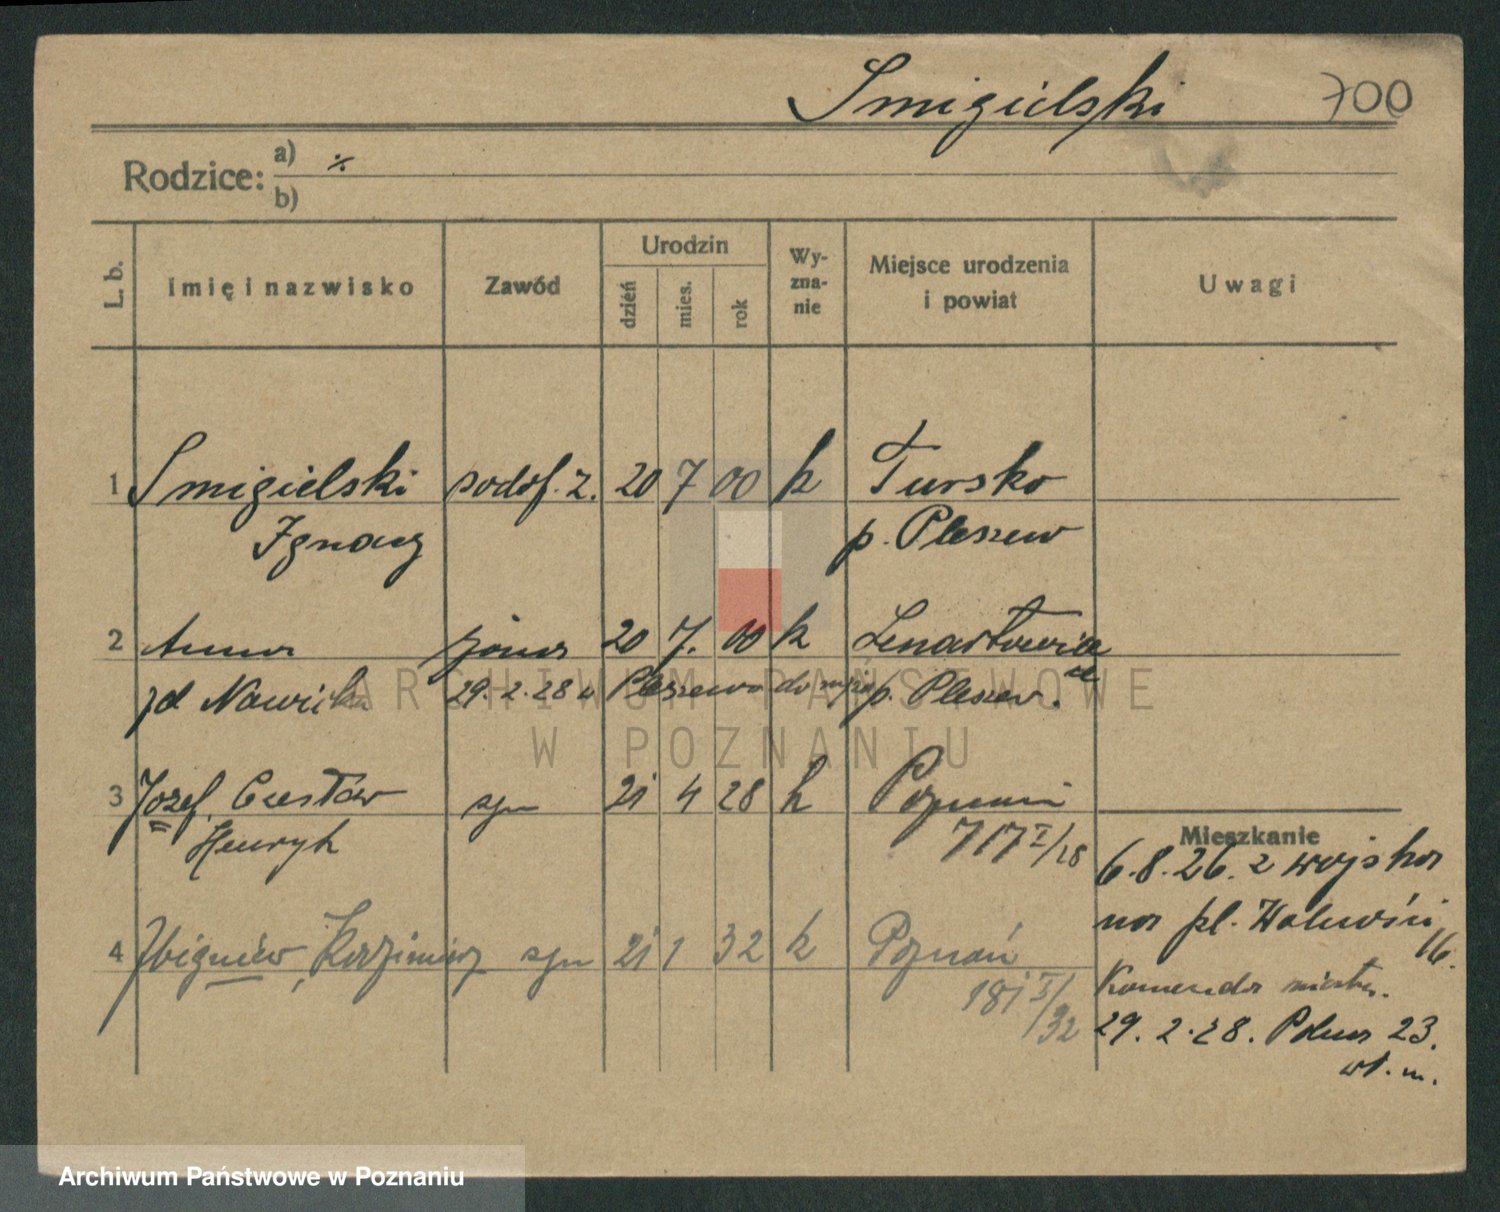 Smigielski 700
Rodzice: a) ·/.
b)
L. b. Imię i nazwisko Zawód Urodzin dzień mies. rok Wy-zna-nie Miejsce urodzenia i powiat Uwagi
1 Smigielski podof. z. 20 7 00 k Tursko
Ignacy p. Pleszew
2 Anna żona 20 7. 00 k Lenartowice
zd Nawick 29. 2. 28 Pleszewa do p. Pleszew.
3 Józef, Czesław syn 21 4 28 k Poznań
Henryk 717 I/28
Mieszkanie
6.8.26. z wojska
na pl. Wolności
16.
4 Zbigniew, Kazimierz syn 21 1 32 k Poznań
181 I/32
Komenda miasta.
29. 2. 28. Polna 23.
wł. m.
ARCHIWUM PAŃSTWOWE
W POZNANIU
Archiwum Państwowe w Poznaniu